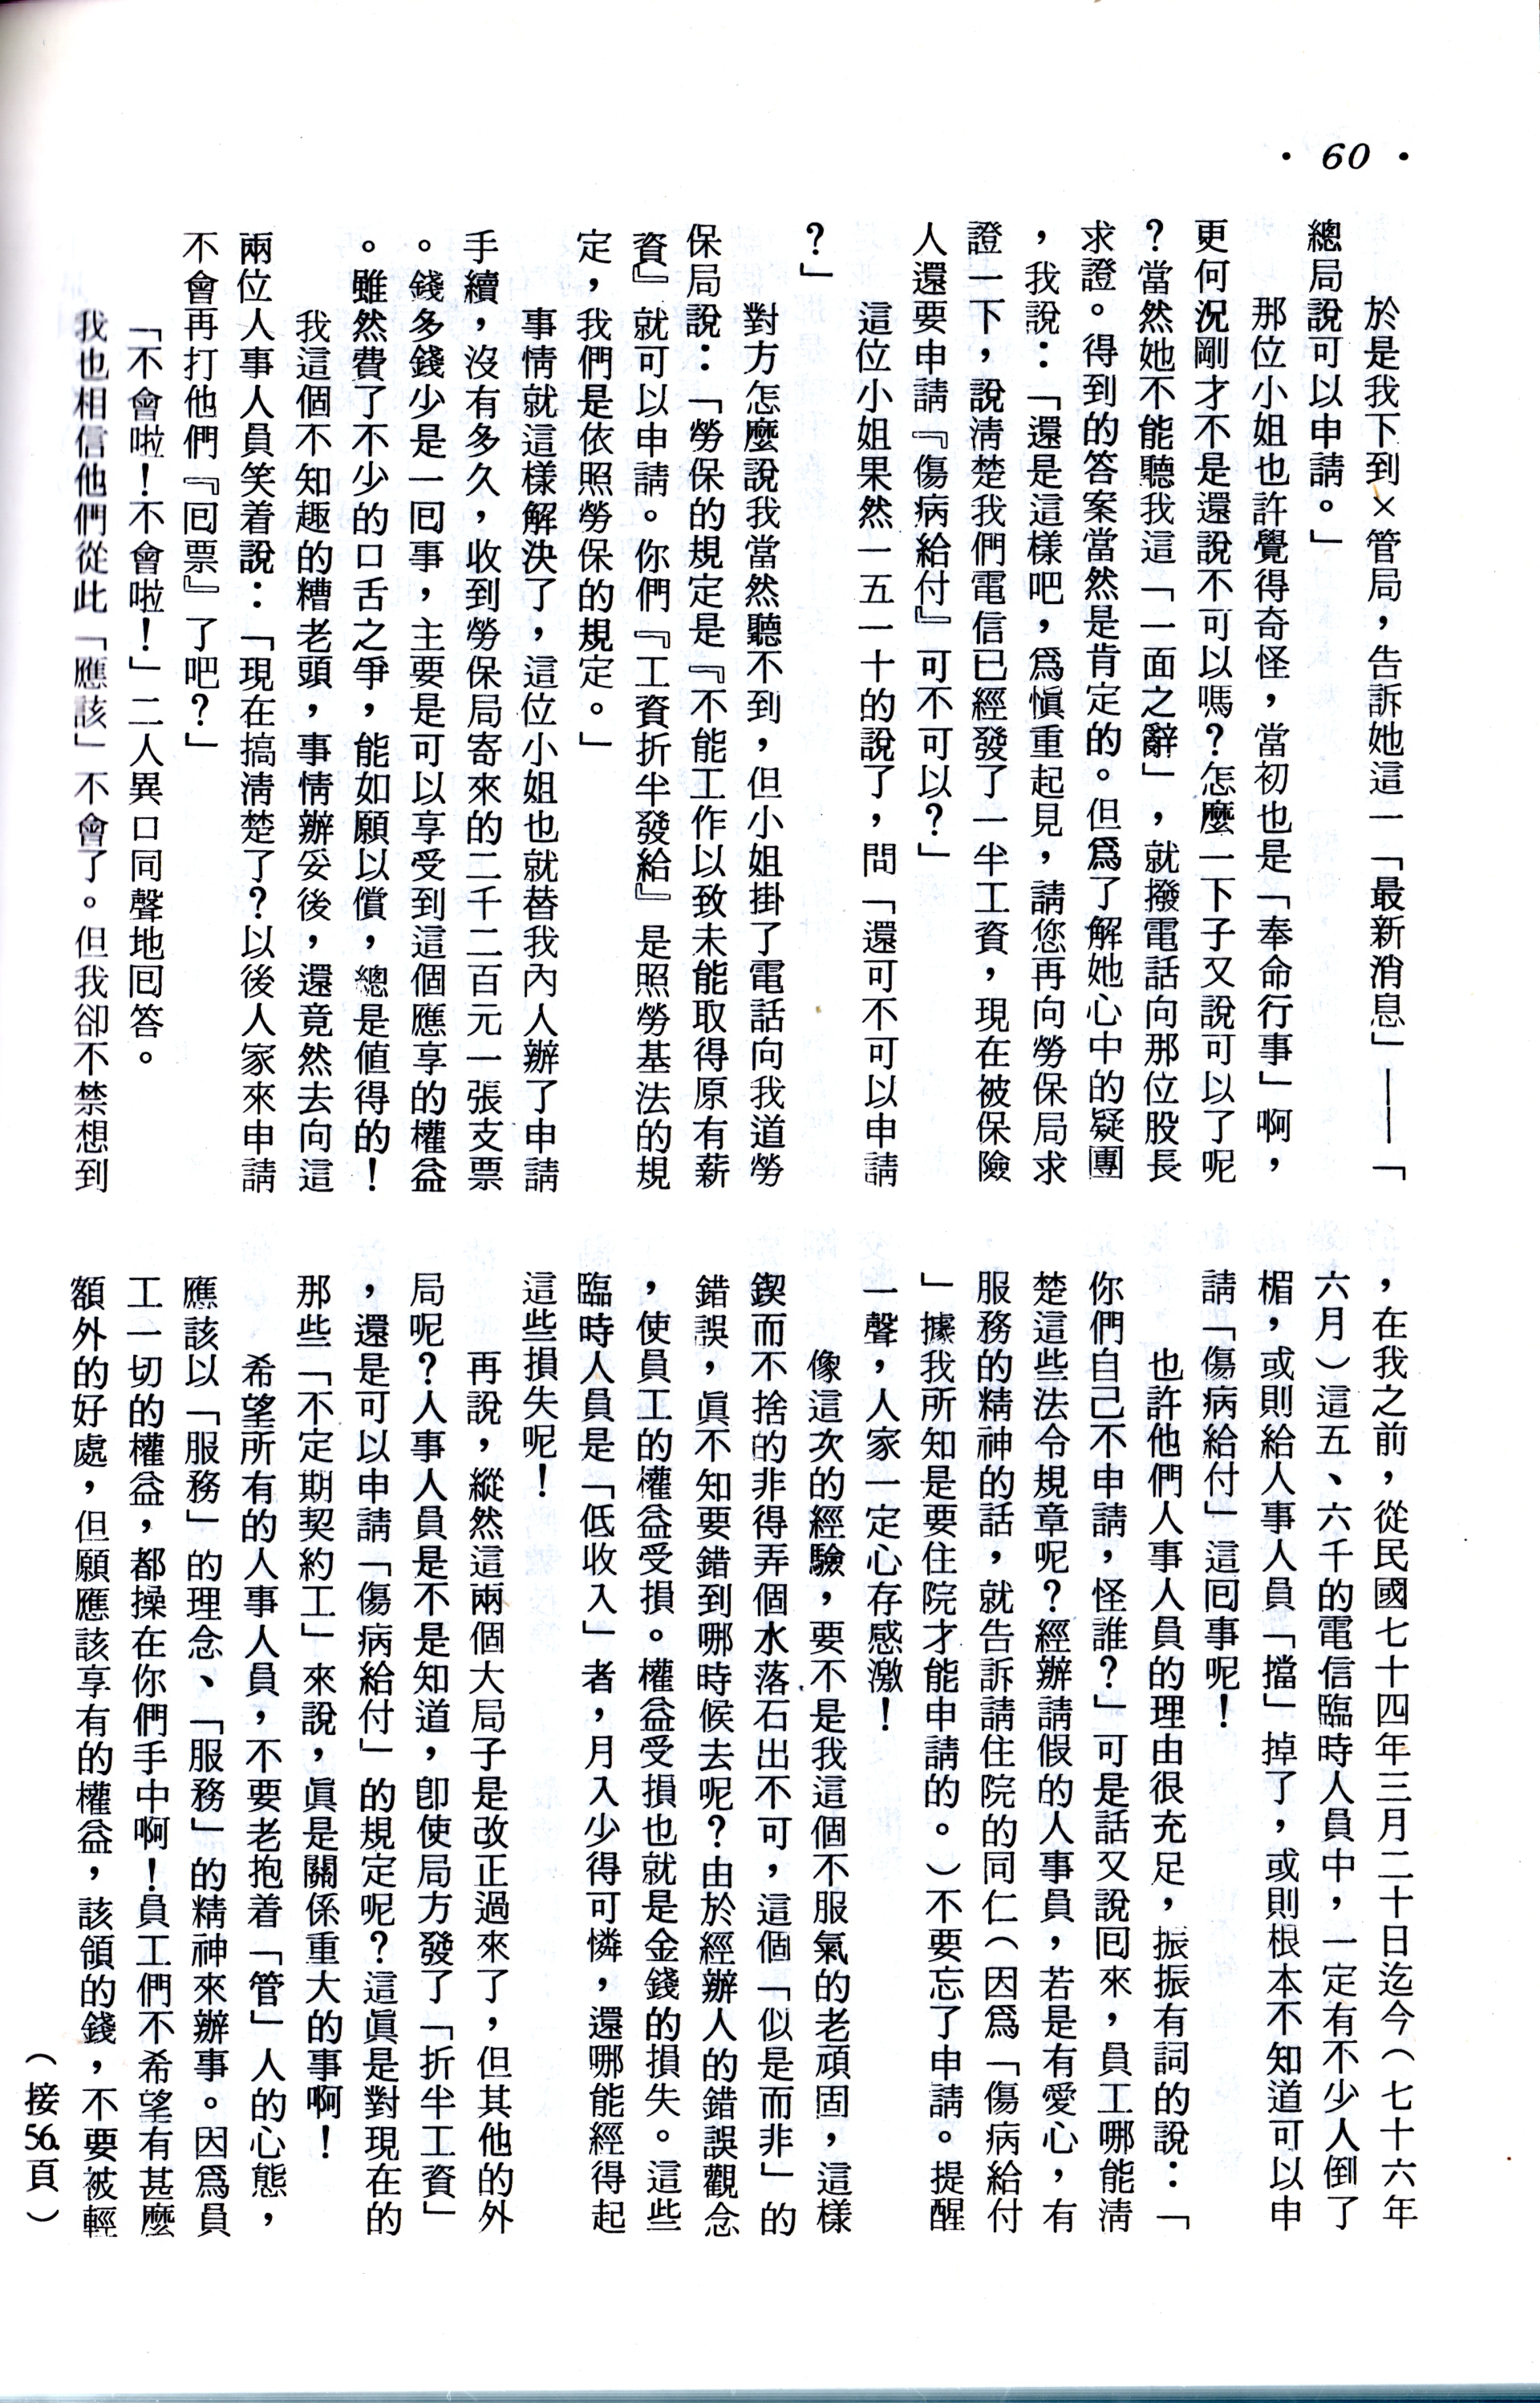 · 60 ·
於是我下到×管局，告訴她這一「最新消息」——「
總局說可以申請。」
那位小姐也許覺得奇怪，當初也是「奉命行事」啊，
更何況剛才不是還說不可以嗎？怎麼一下子又說可以了呢
？當然她不能聽我這「一面之辭」，就撥電話向那位股長
求證。得到的答案當然是肯定的。但爲了解她心中的疑團
，我說：「還是這樣吧，爲愼重起見，請您再向勞保局求
證一下，說淸楚我們電信已經發了一半工資，現在被保險
人還要申請『傷病給付』可不可以？」
這位小姐果然一五一十的說了，問「還可不可以申請
？」
對方怎麼說我當然聽不到，但小姐掛了電話向我道勞
保局說：「勞保的規定是『不能工作以致未能取得原有薪
資』就可以申請。你們『工資折半發給』是照勞基法的規
定，我們是依照勞保的規定。」
事情就這樣解決了，這位小姐也就替我內人辦了申請
手續，沒有多久，收到勞保局寄來的二千二百元一張支票
。錢多錢少是一回事，主要是可以享受到這個應享的權益
。雖然費了不少的口舌之爭，能如願以償，總是值得的！
我這個不知趣的糟老頭，事情辦妥後，還竟然去向這
兩位人事人員笑着說：「現在搞淸楚了？以後人家來申請
不會再打他們『回票』了吧？」
「不會啦！不會啦！」二人異口同聲地回答。
我也相信他們從此「應該」不會了。但我卻不禁想到
，在我之前，從民國七十四年三月二十日迄今（七十六年
六月）這五、六千的電信臨時人員中，一定有不少人倒了
楣，或則給人事人員「擋」掉了，或則根本不知道可以申
請「傷病給付」這回事呢！
也許他們人事人員的理由很充足，振振有詞的說：「
你們自己不申請，怪誰？」可是話又說回來，員工哪能淸
楚這些法令規章呢？經辦請假的人事員，若是有愛心，有
服務的精神的話，就告訴請住院的同仁（因爲「傷病給付
」據我所知是要住院才能申請的。）不要忘了申請。提醒
一聲，人家一定心存感激！
像這次的經驗，要不是我這個不服氣的老頑固，這樣
鍥而不捨的非得弄個水落石出不可，這個「似是而非」的
錯誤，眞不知要錯到哪時候去呢？由於經辦人的錯誤觀念
，使員工的權益受損。權益受損也就是金錢的損失。這些
臨時人員是「低收入」者，月入少得可憐，還哪能經得起
這些損失呢！
再說，縱然這兩個大局子是改正過來了，但其他的外
局呢？人事人員是不是知道，卽使局方發了「折半工資」
，還是可以申請「傷病給付」的規定呢？這眞是對現在的
那些「不定期契約工」來說，眞是關係重大的事啊！
希望所有的人事人員，不要老抱着「管」人的心態，
應該以「服務」的理念、「服務」的精神來辦事。因爲員
工一切的權益，都操在你們手中啊！員工們不希望有甚麼
額外的好處，但願應該享有的權益，該領的錢，不要被輕
（接56.頁）